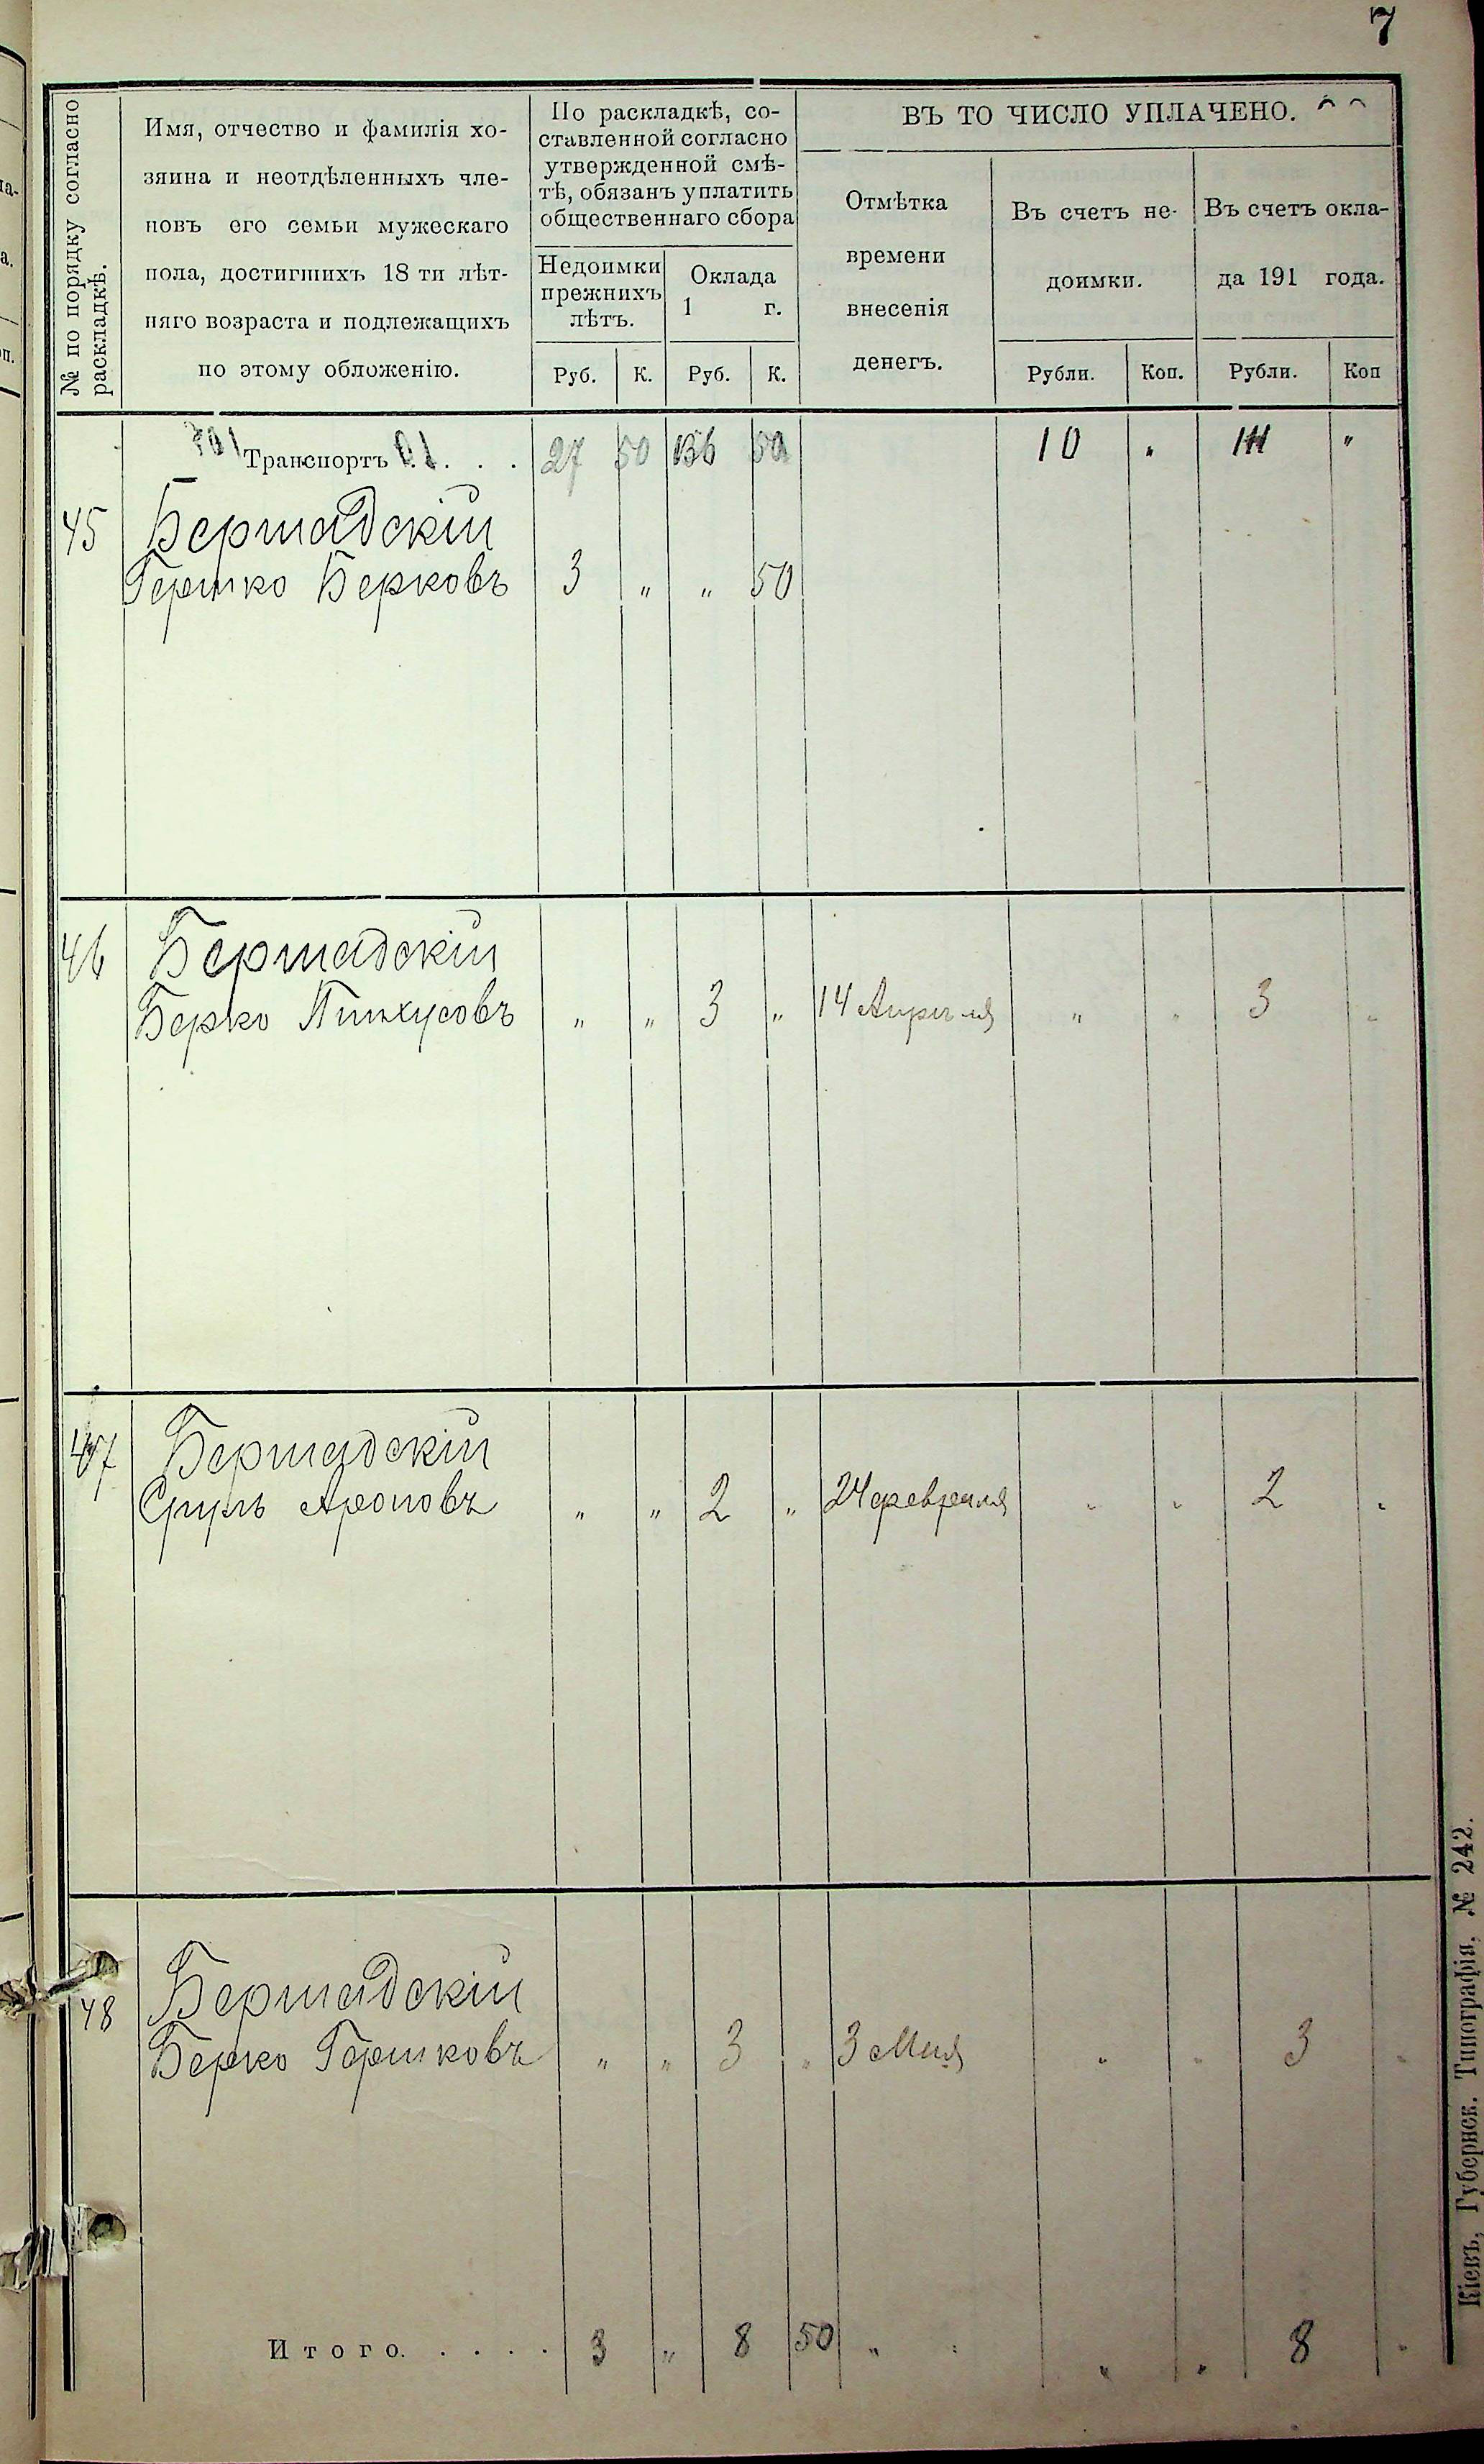 7
№ по порядку согласно
раскладкѣ.
Имя, отчество и фамилія хо-
зяина и неотдѣленныхъ чле-
новъ его семьи мужескаго
пола, достигшихъ 18 ти лѣт-
няго возраста и подлежащихъ
по этому обложенію.
По раскладкѣ, со-
ставленной согласно
утвержденной смѣ-
тѣ, обязанъ уплатить
общественнаго сбора
Недоимки
прежнихъ
лѣтъ.
Оклада
1 г.
Руб. К. Руб. К.
ВЪ ТО ЧИСЛО УПЛАЧЕНО.
Отмѣтка
времени
внесенія
денегъ.
Въ счетъ не-
доимки.
Рубли. Коп.
Въ счетъ окла-
да 191 года.
Рубли. Коп
Транспортъ . . . . 27 50 136 50 10 „ 111 „
45 Бершадскій
Гершко Берковъ 3 „ „ 50
46 Бершадскій
Берко Пинхусовъ „ „ 3 „ 14 Апрѣля „ „ 3 „
47 Бершадскій
Сруль Ароновъ „ „ 2 „ 24 февраля „ „ 2 „
48 Бершадскій
Берко Гершковъ „ „ 3 „ 3 Мая „ „ 3 „
Итого. . . . . 3 „ 8 50 „ „ „ „ 8 „
Кіевъ, Губернск. Типографія, № 242.